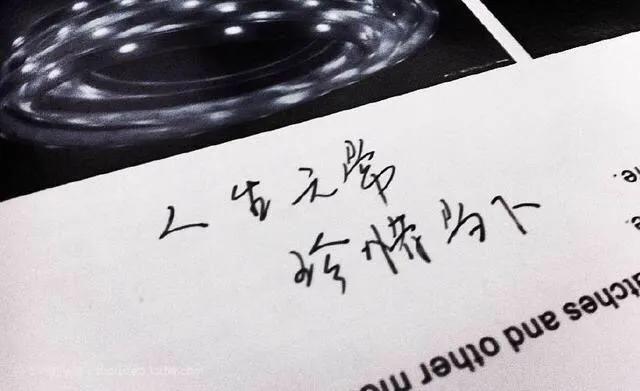 人生无常
珍惜当下
atches and other mo